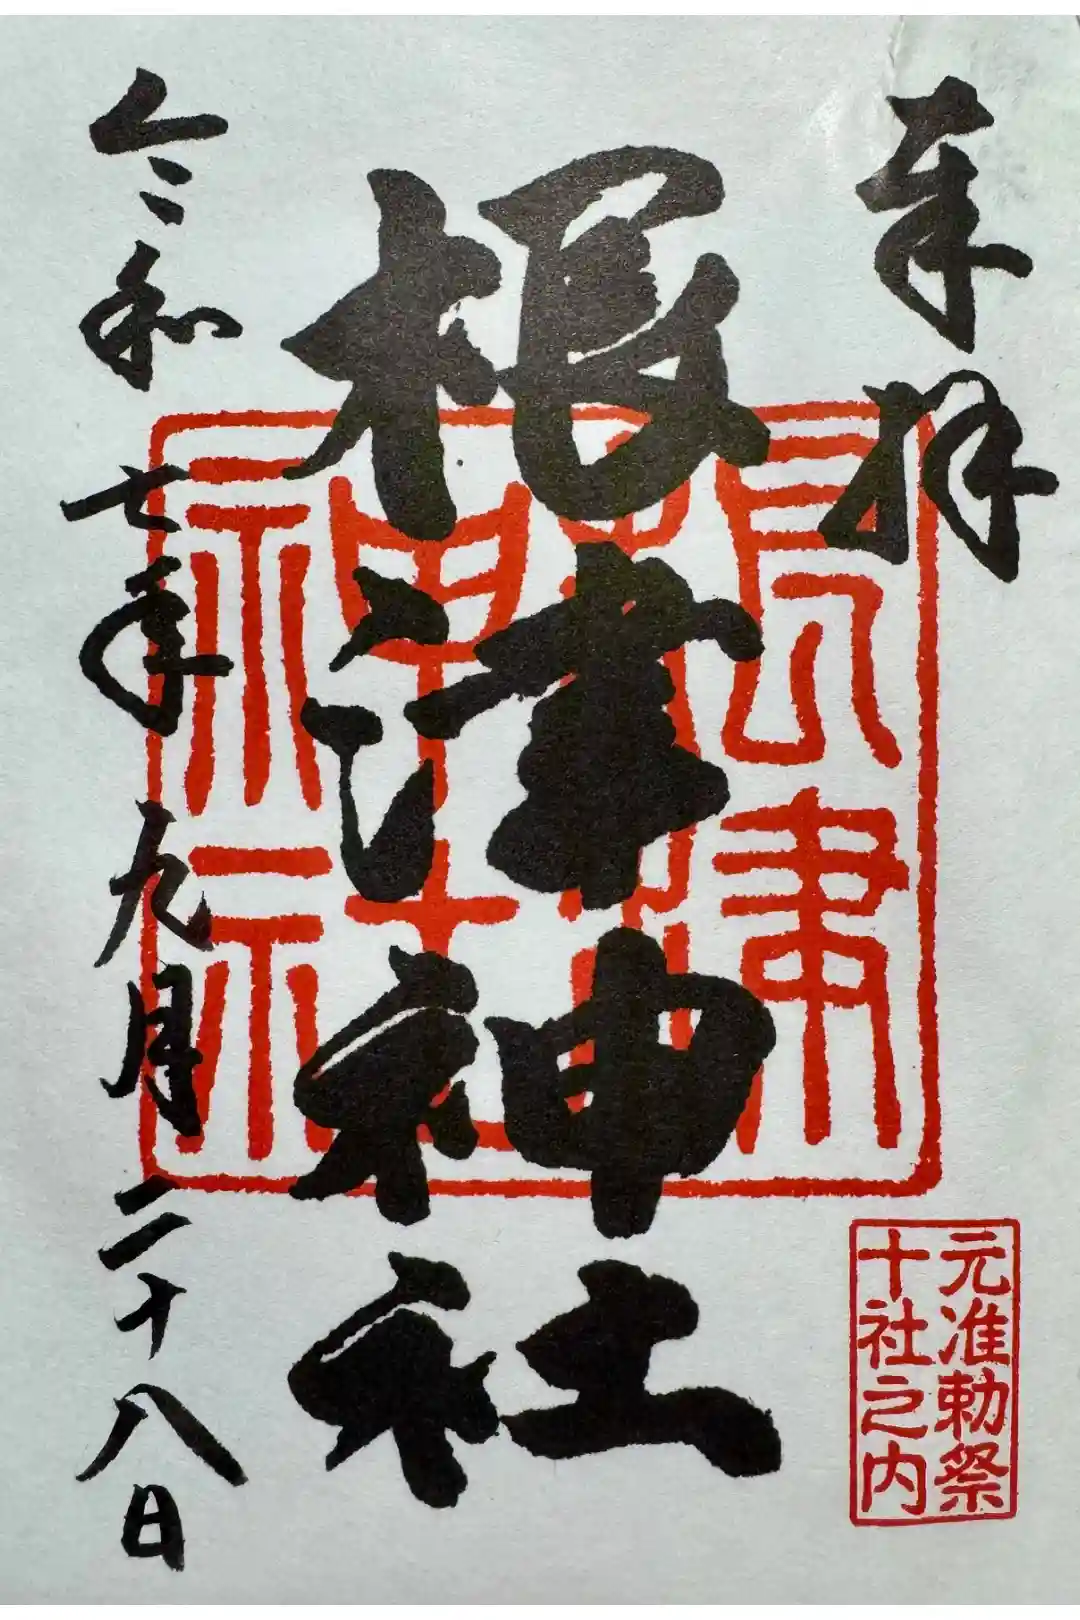 奉拝
根津神社
根津神社
元准勅祭
十社之内
令和七年九月二十八日